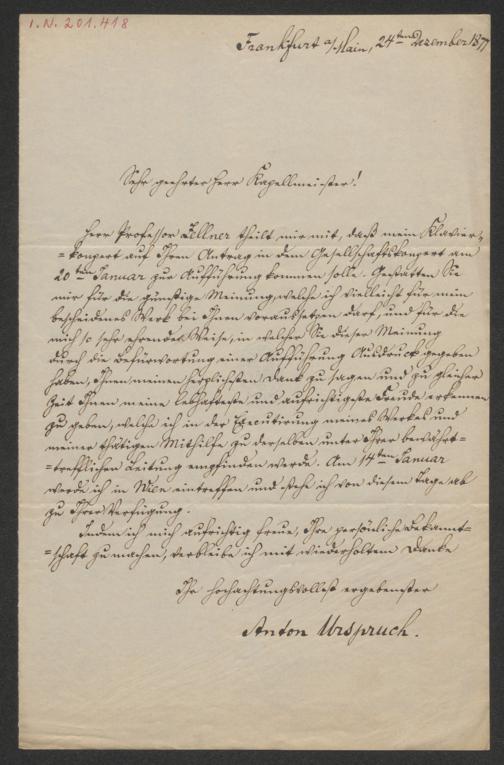 I.N. 201.418
Frankfurt a/Main, 24ten Dezember 1877
Sehr geehrter Herr Kapellmeister!
Herr Professor Zellner theilt mir mit, daß mein Klavier-
=konzert auf Ihren Antrag in dem Gesellschaftskonzert am
20ten Januar zur Aufführung kommen solle. Gestatten Sie
mir für die günstige Meinung, welche ich vielleicht für mein
bescheidenes Werk bei Ihnen voraussetzen darf, und für die
mich so sehr ehrende Weise, in welcher Sie dieser Meinung
durch die Befürwortung einer Aufführung Ausdruck gegeben
haben, Ihnen meinen herzlichsten Dank zu sagen und zu gleicher
Zeit Ihnen meine lebhafteste und aufrichtigste Freude erkennen
zu geben, welche ich in der Executirung meines Werkes und
meiner thätigen Mithilfe zu derselben unter Ihrer bewährt-
=trefflichen Leitung empfinden werde. Am 14ten Januar
werde ich in Wien eintreffen und stehe ich von diesem Tage ab
zu Ihrer Verfügung.
Indem ich mich aufrichtig freue, Ihre persönliche Bekannt=
=schaft zu machen, verbleibe ich mit wiederholtem Danke
Ihr hochachtungsvollst ergebenster
Anton Urspruch.